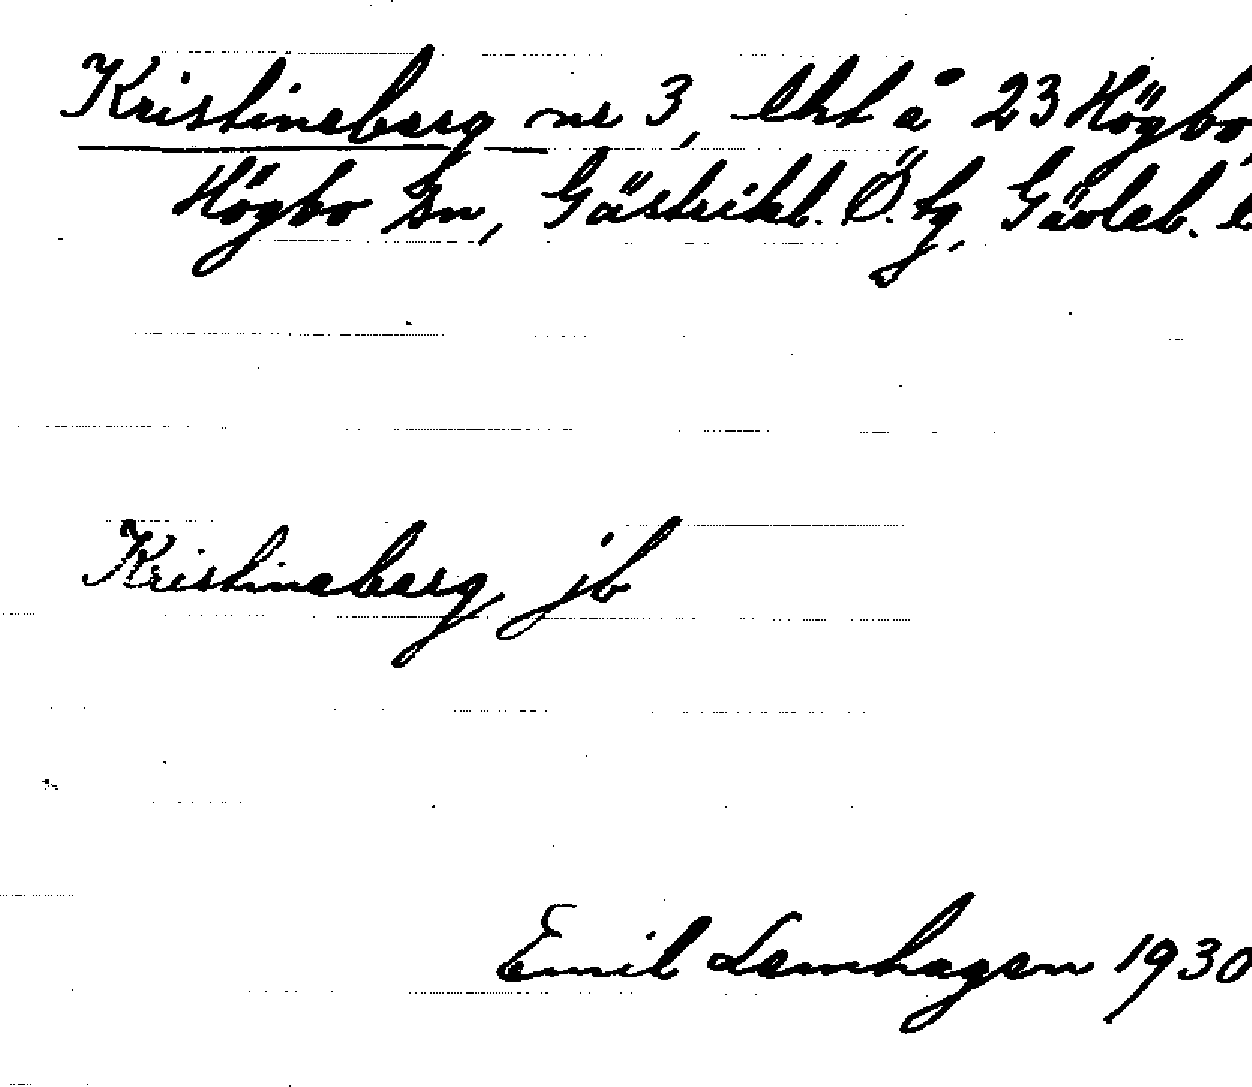 Kristineberg nr 3, lht å 23 Högbo
Högbo sn, Gästrikl. Ö. hg, Gävleb. l
Kristineberg, jb
Emil Lamhagen 1930